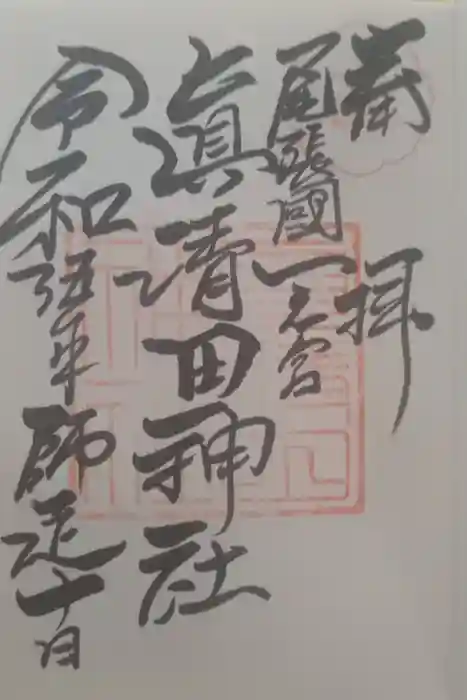 奉拝
尾張國一之宮
眞清田神社
令和伍年師走十日